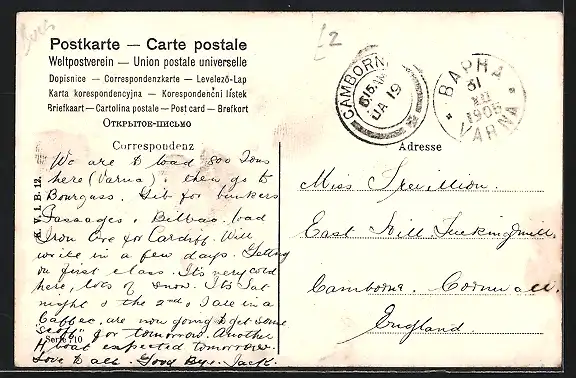 £2
Postkarte — Carte postale
Weltpostverein — Union postale universelle
Dopisnice — Correspondenzkarte — Levelező-Lap
Karta korespondencyjna — Korespondenční lístek
Briefkaart — Cartolina postale — Post card — Brefkort
Открытое-письмо
CAMBORNE
5 15 AM
JA 19
ВАРНА
31
XII
1906
VARNA
Correspondenz
Adresse
We are to load 800 Tons
here (Varna). then go to
Bourgass. Gib for bunkers
Passages & Bilbao. load
Iron Ore for Cardiff. Will
write in a few days. Getting
on first class. Its very cold
here, lots of snow. Its Sat
night & the 2nd & I are in a
Caffee, we are now going to get some
for tomorrow. Another
H boat expected tomorrow.
Love to all. Good Bye. Jack.
K. V. i. B. 12.
Serie 710
Miss Trevillion.
East Hill. Tuckingmill.
Camborne. Cornwall.
England.